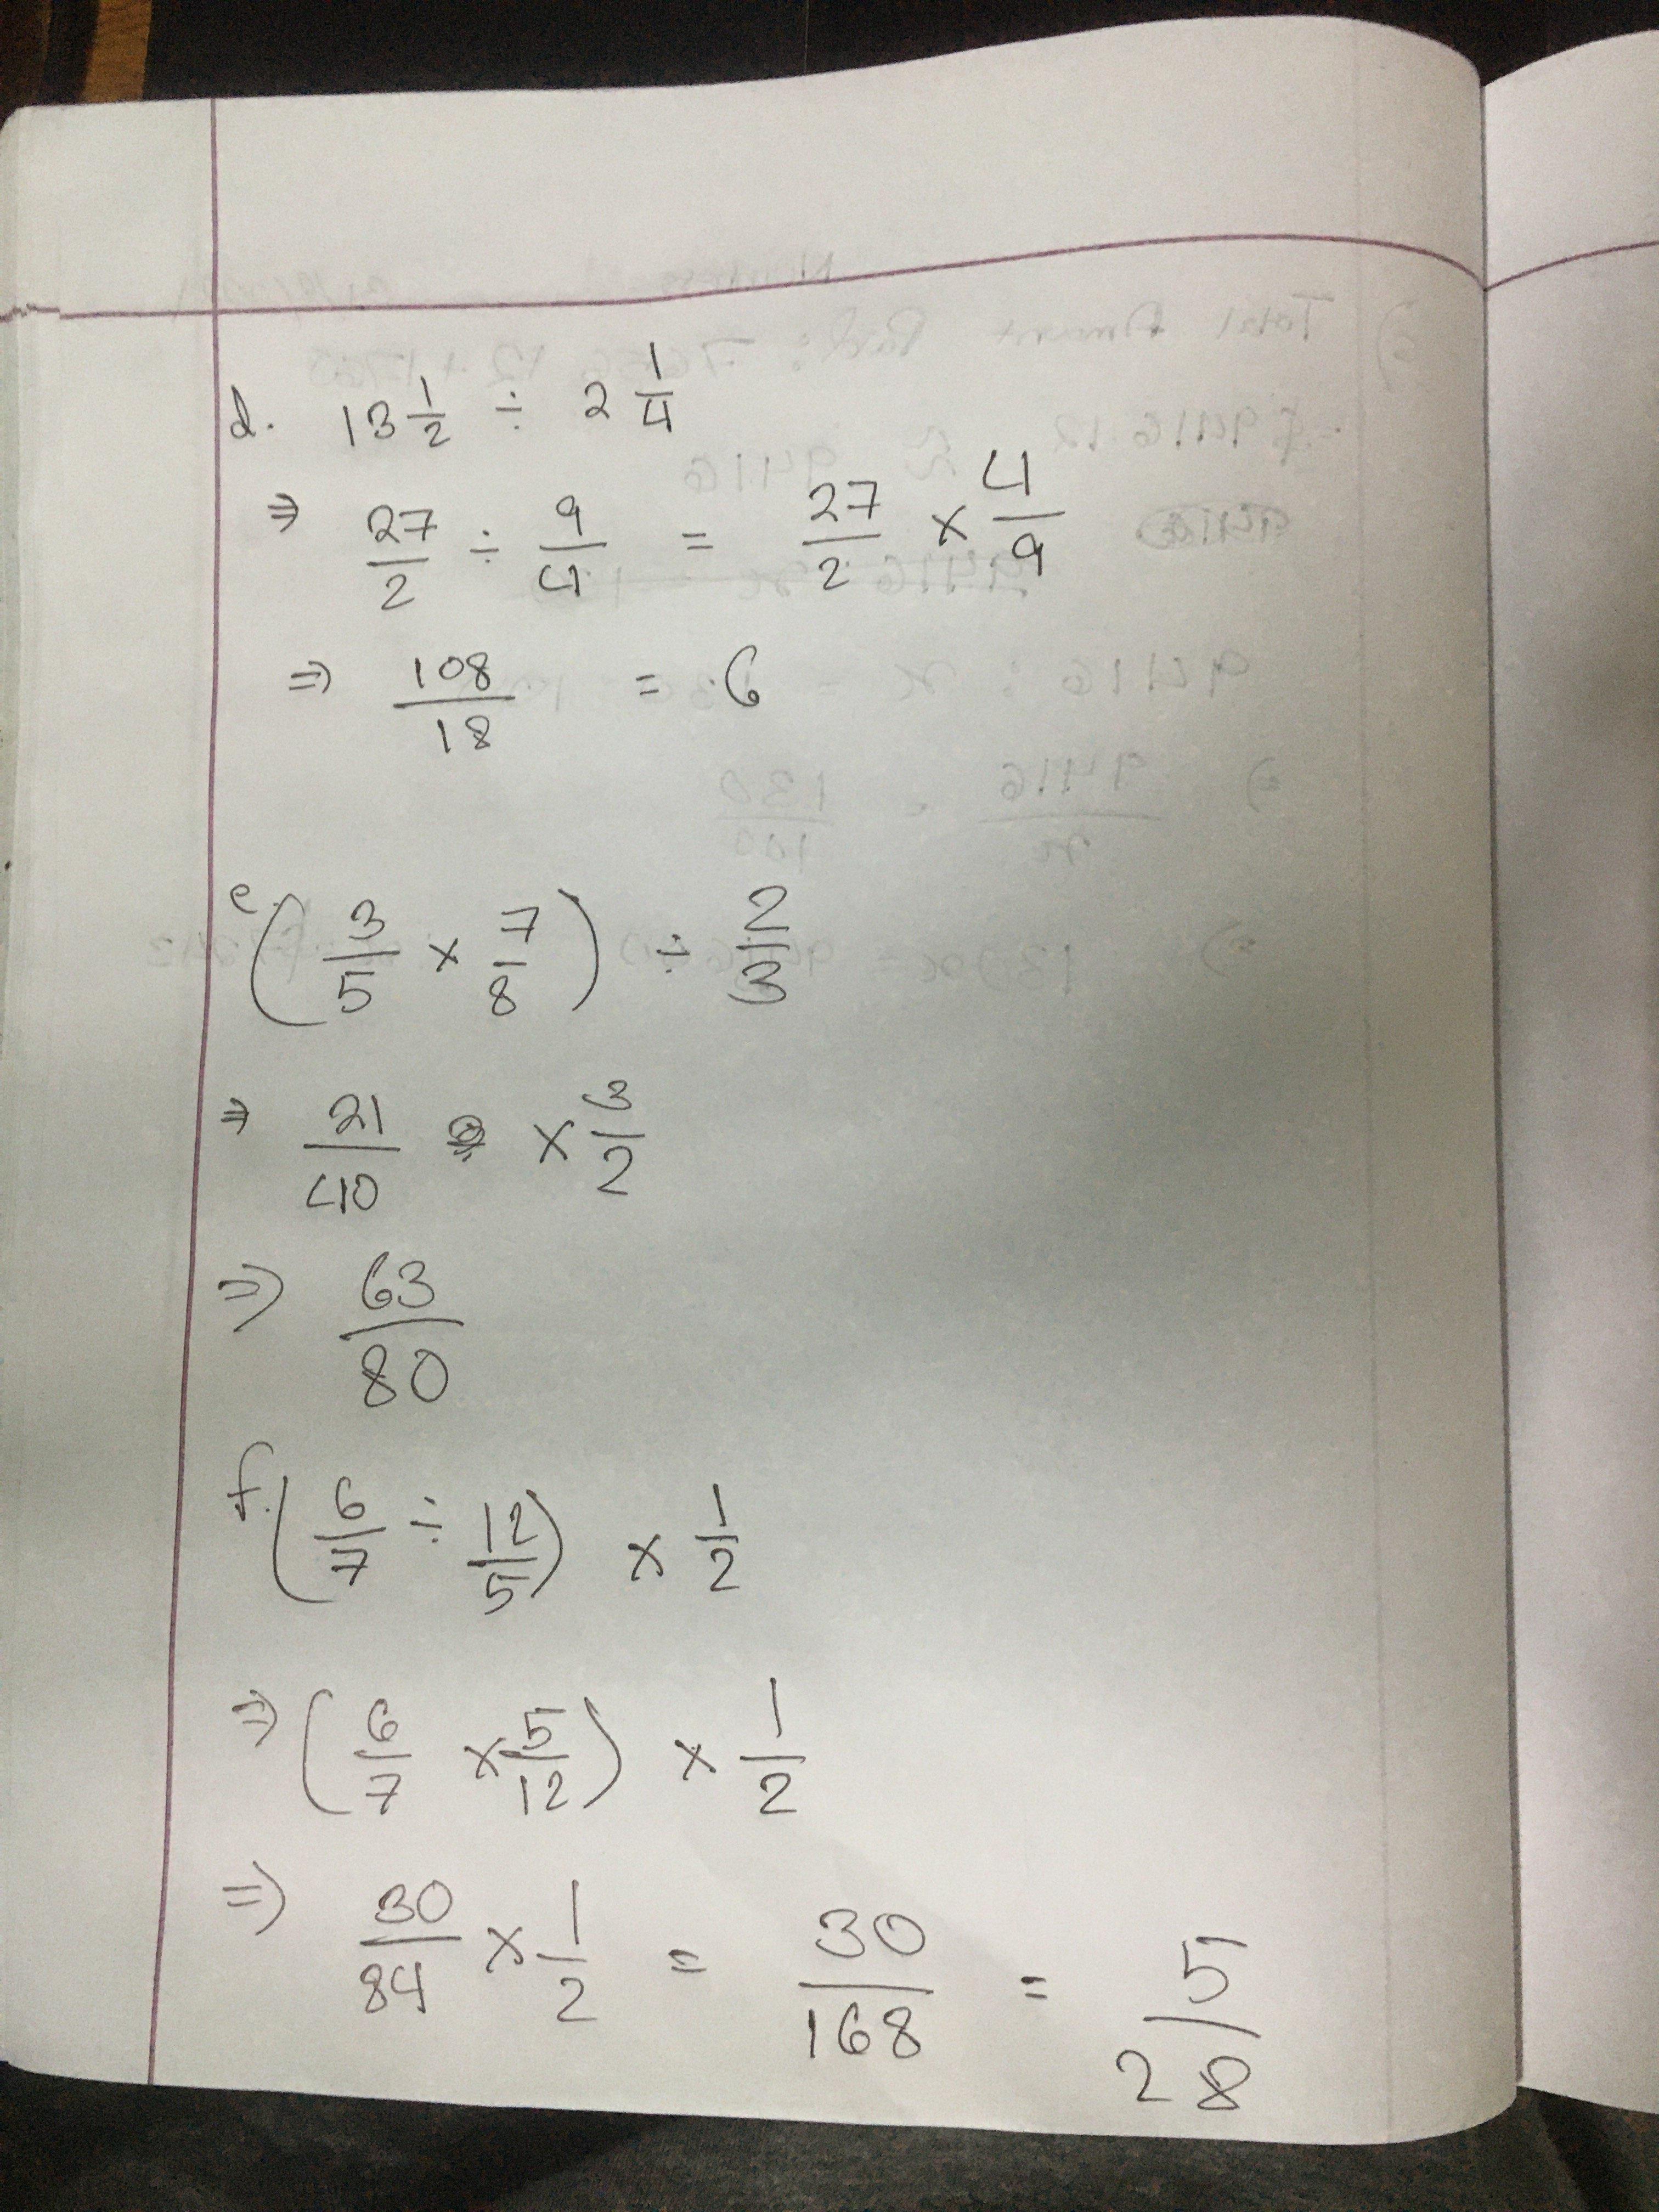 d. 13 1/2 ÷ 2 1/4
⇒ 27/2 ÷ 9/4 = 27/2 × 4/9
⇒ 108/18 = 6
e. (3/5 × 7/8) ÷ 2/3
⇒ 21/40 × 3/2
⇒ 63/80
f. (6/7 ÷ 12/5) × 1/2
⇒ (6/7 × 5/12) × 1/2
⇒ 30/84 × 1/2 = 30/168 = 5/28